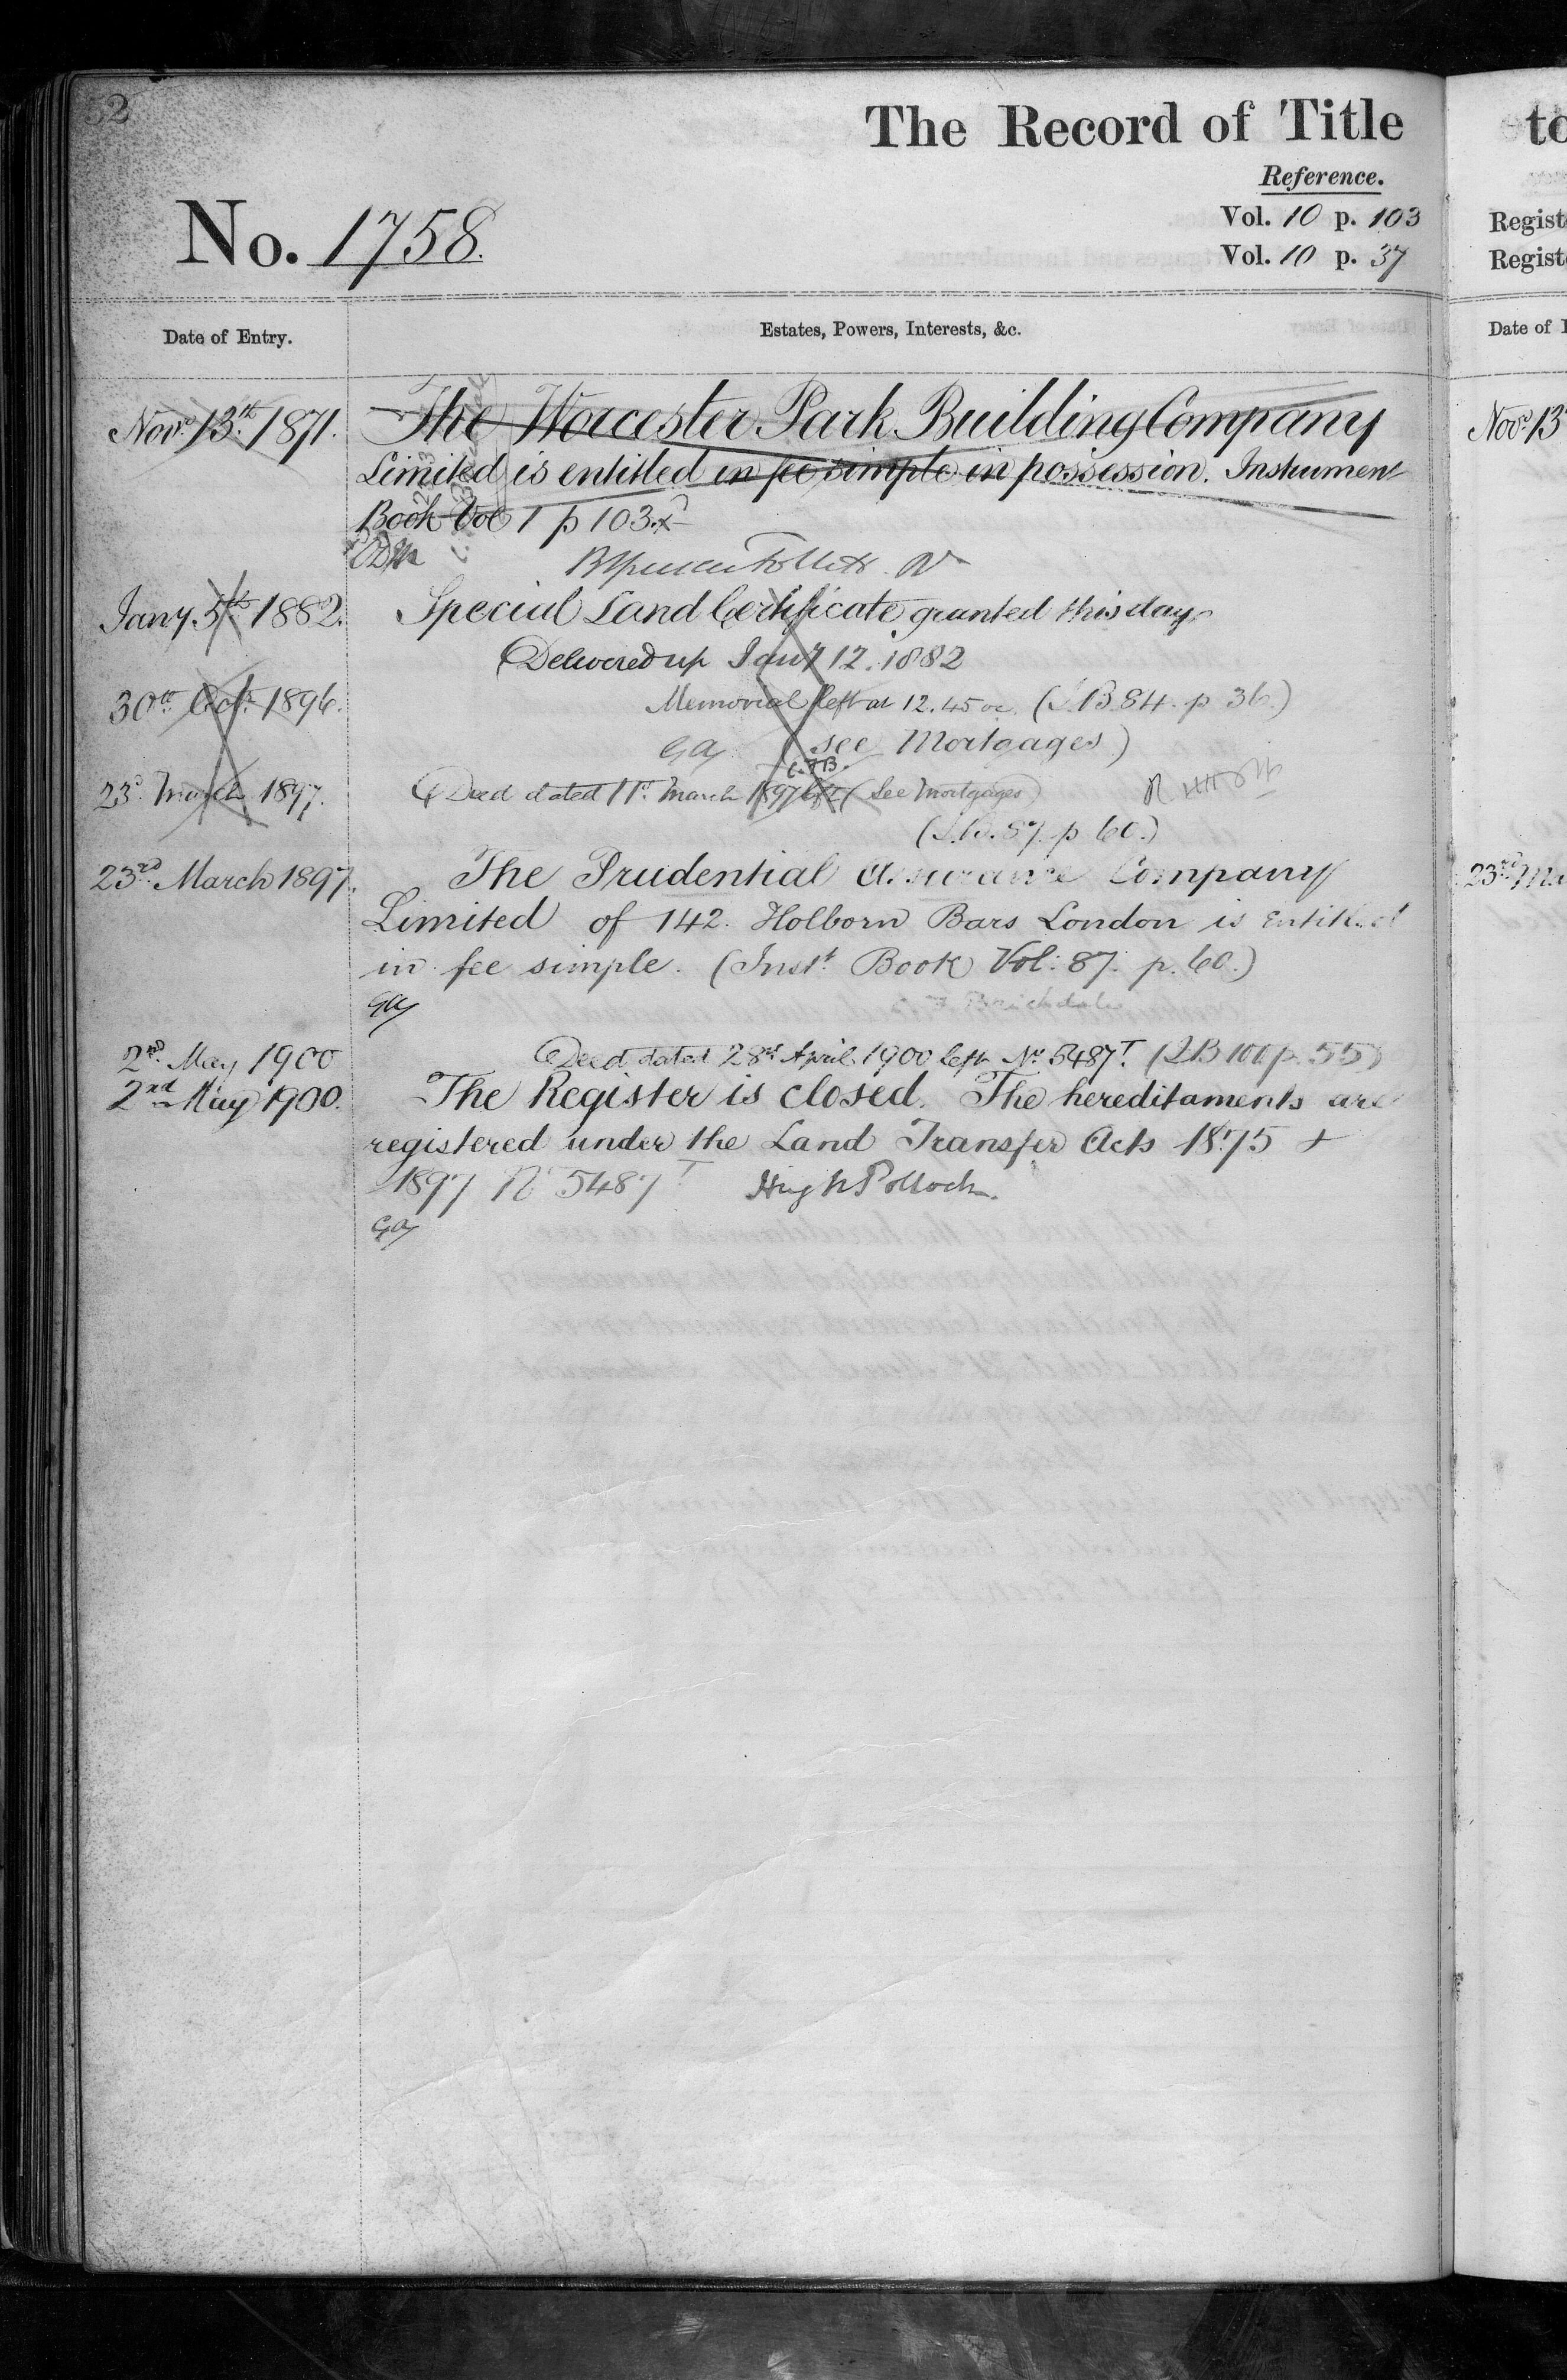 52
The Record of Title
Reference.
No. 1758.
Vol. 10 p. 103
Vol. 10 p. 37
Date of Entry.
Estates, Powers, Interests, &c.
Novr. 13th. 1871.
The Worcester Park Building Company
Limited is entitled in fee simple in possession. Instrument
Book Vol 1 p 103.
Jany. 5th 1882.
Special Land Certificate granted this day
Delivered up Jany 12. 1882
30th Oct. 1896.
Memorial left at 12.45 (I.B. 84. p 36.)
GAy (see Mortgages)
C.F.B.
23d. March 1897.
Deed dated 11th. March 1897 left (See Mortgages)
(I.B. 87. p 60.)
23rd. March 1897.
The Prudential Assurance Company
Limited of 142. Holborn Bars London is entitled
in fee simple. (Inst. Book Vol: 87. p. 60.)
GAy
C F Brickdale
2nd. May 1900
Deed dated 28th April. 1900 left No. 5487T. (IB 100 p. 55)
2nd May 1900.
The Register is closed. The hereditaments are
registered under the Land Transfer Acts 1875 +
1897 No 5487T Hugh Pollock.
GAy
to
Regist
Regist
Date of
Novr. 13
23rd Ma